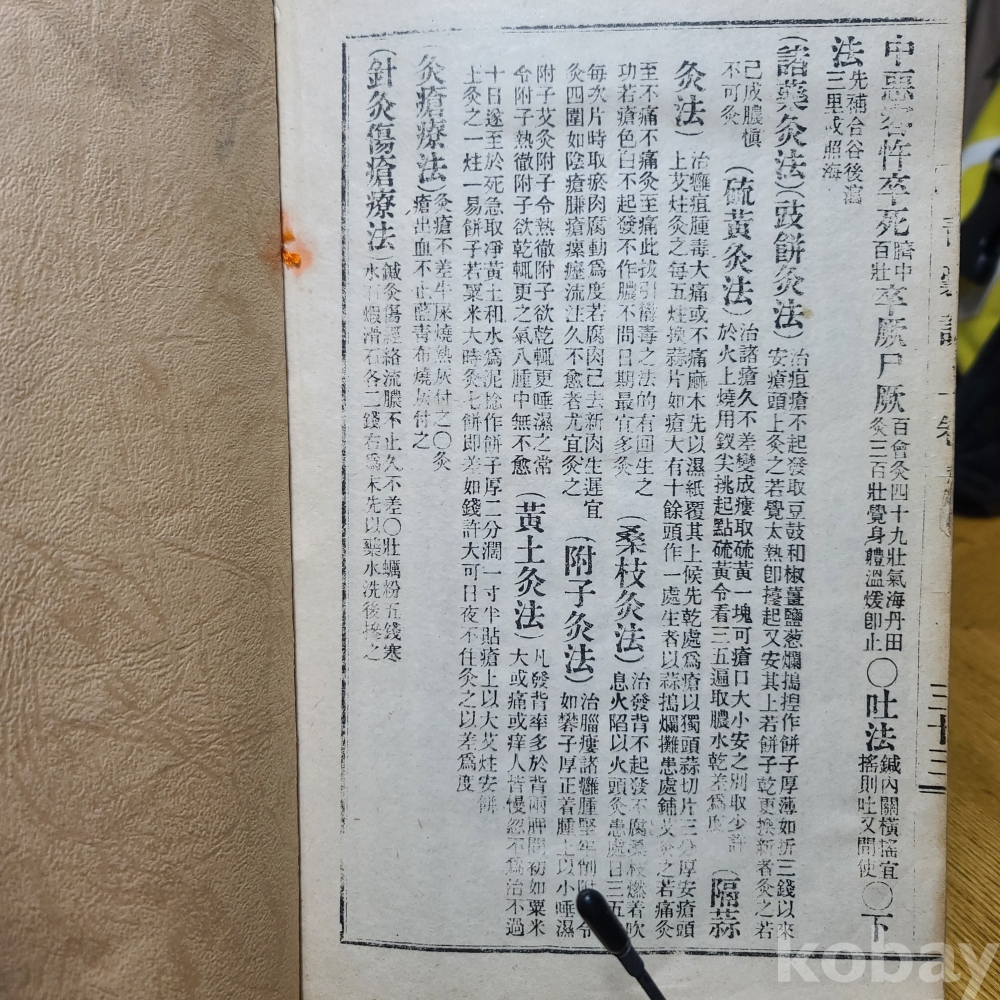 中惡客忤卒死
臍中
百壯
卒厥尸厥
百會灸四十九壯氣海丹田
灸三百壯覺身體溫煖卽止
○吐法
鍼內關橫搖宜
搖則吐又間使
○下
法
先補合谷後瀉
三里或照海
(諸藥灸法)(豉餅灸法)
治疽瘡不起發取豆鼓和椒薑鹽葱爛搗揑作餅子厚薄如折三錢以來
安瘡頭上灸之若覺太熱卽擡起又安其上若餅子乾更換新者灸之若
已成膿愼
不可灸
(硫黃灸法)
治諸瘡久不差變成瘻取硫黃一塊可瘡口大小安之別取少許
於火上燒用釵尖挑起點硫黃令看三五遍取膿水乾差爲度
(隔蒜
灸法)
治癰疽腫毒大痛或不痛麻木先以濕紙覆其上候先乾處爲瘡以獨頭蒜切片三分厚安瘡頭
上艾炷灸之每五炷換蒜片如瘡大有十餘頭作一處生者以蒜搗爛攤患處鋪艾灸之若痛灸
至不痛不痛灸至痛此拔引鬱毒之法的有回生之
功若瘡色白不起發不作膿不問日期最宜多灸
(桑枝灸法)
治發背不起發不腐桑枝燃着吹
息火陷以火頭灸患處日三五
每次片時取瘀肉腐動爲度若腐肉已去新肉生遲宜
灸四圍如陰瘡臁瘡瘰癧流注久不愈者尤宜灸之
(附子灸法)
治腦瘻諸癰腫堅牢削附令
如棊子厚正着腫上以小唾濕
附子艾灸附子令熱徹附子欲乾輒更唾濕之常
令附子熱徹附子欲乾輒更之氣入腫中無不愈
(黃土灸法)
凡發背率多於背兩胛間初如粟米
大或痛或痒人皆慢忽不爲治不過
十日遂至於死急取净黃土和水爲泥捻作餅子厚二分濶一寸半貼瘡上以大艾炷安餅
上灸之一炷一易餅子若粟米大時灸七餅即差如錢許大可日夜不住灸之以差爲度
(灸瘡療法)
灸瘡不差牛屎燒熱灰付之○灸
瘡出血不止藍靑布燒灰付之
(針灸傷瘡療法)
鍼灸傷經絡流膿不止久不差○牡蠣粉五錢寒
水石蝦滑石各二錢右爲末先以藥水洗後摻之
三十三
kobay